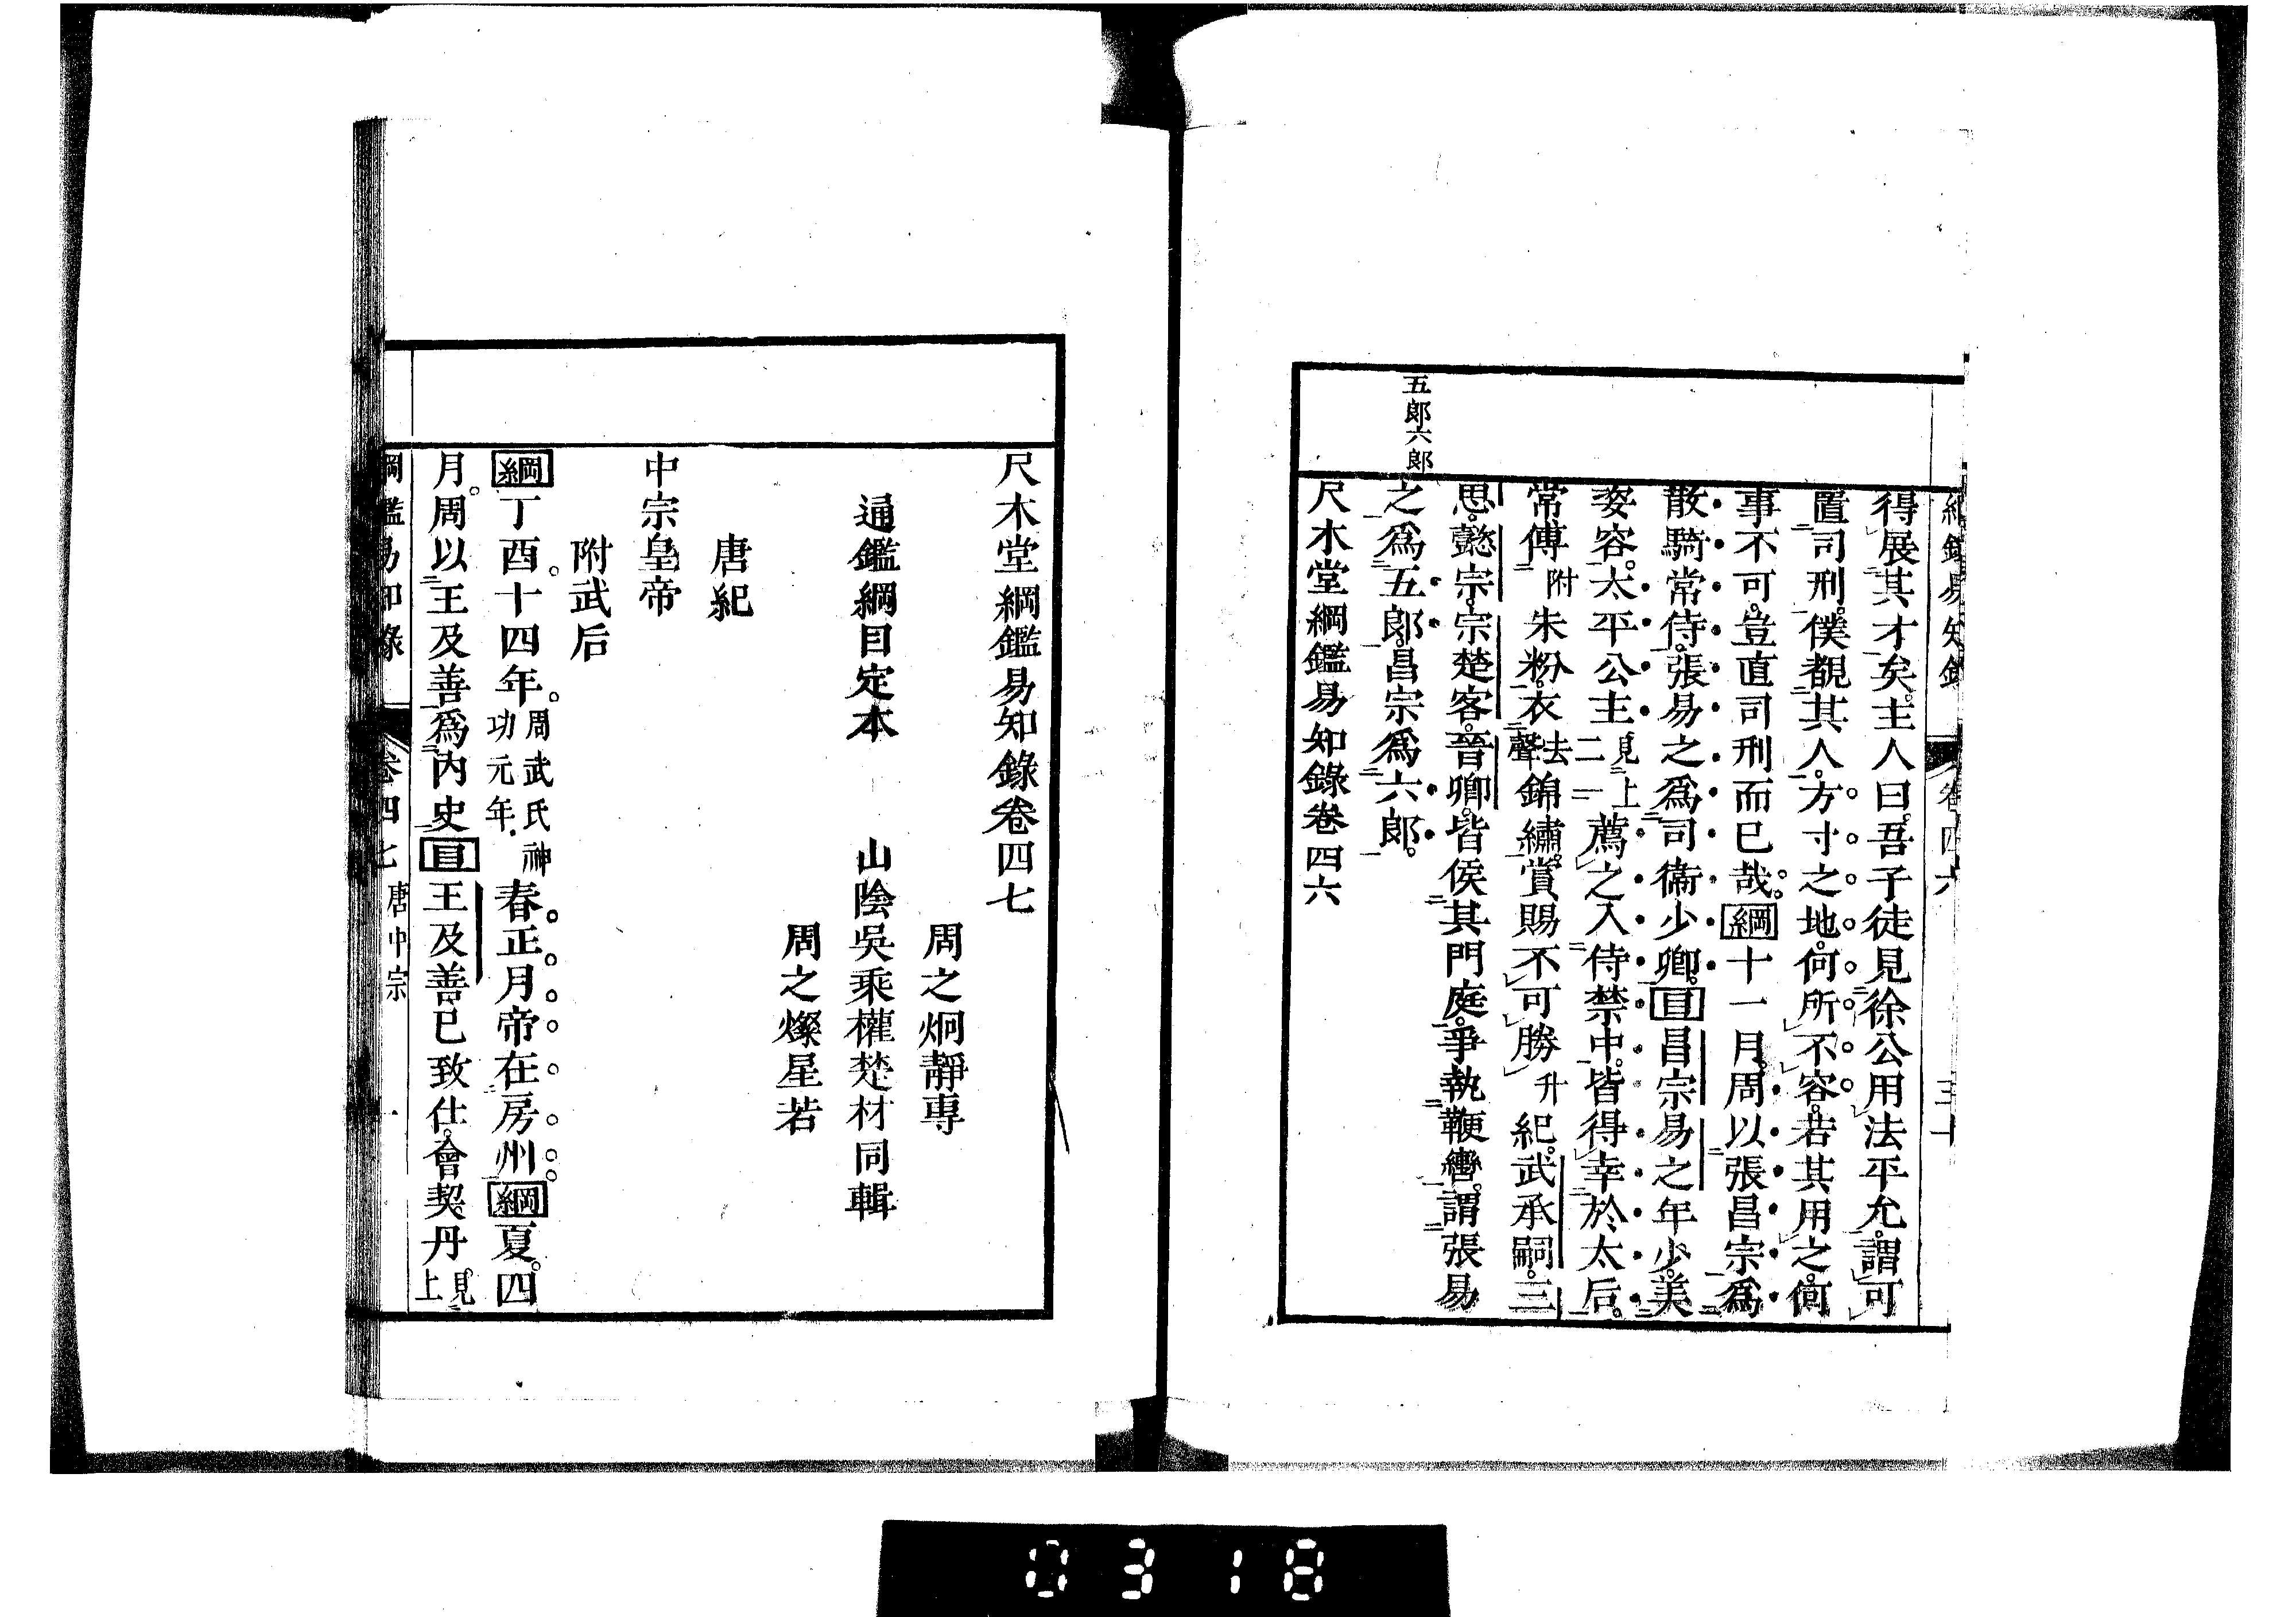 綱鑑易知錄 卷四六
得展其才矣主人曰吾子徒見徐公用法平允謂可
置司刑僕覩其人方寸之地何所不容若其用之何
事不可豈直司刑而已哉綱十一月周以張昌宗爲
散騎常侍張易之爲司衞少卿目昌宗易之年少美
姿容太平公主見上二一薦之入侍禁中皆得幸於太后
常傅附朱粉衣去聲錦繡賞賜不可勝升紀武承嗣三
思懿宗宗楚客晉卿皆侯其門庭爭執鞭轡謂張易
之爲五郎昌宗爲六郎
五郎六郎
尺木堂綱鑑易知錄卷四六
尺木堂綱鑑易知錄卷四七
周之炯靜專
通鑑綱目定本 山陰吳乘權楚材同輯
周之燦星若
唐紀
中宗皇帝
附武后
綱丁酉十四年周武氏神功元年春正月帝在房州綱夏四
月周以王及善爲內史目王及善已致仕會契丹見上
綱鑑易知錄 卷四七 唐中宗 一
0318